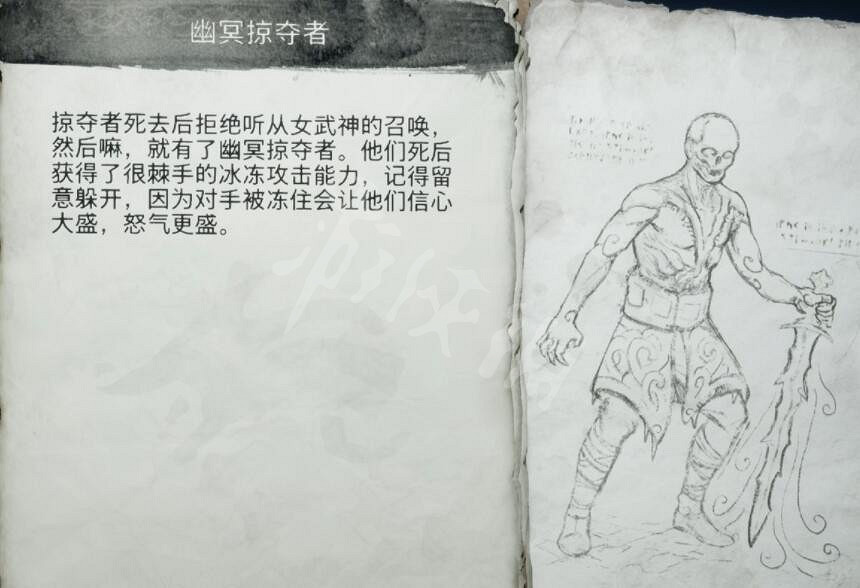 幽冥掠夺者
掠夺者死去后拒绝听从女武神的召唤，
然后嘛，就有了幽冥掠夺者。他们死后
获得了很棘手的冰冻攻击能力，记得留
意躲开，因为对手被冻住会让他们信心
大盛，怒气更盛。